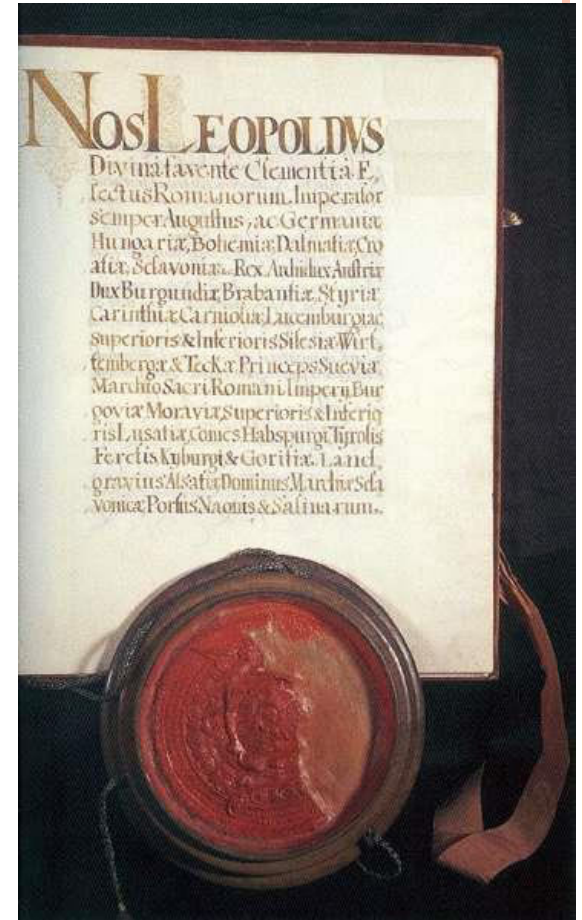 NOS LEOPOLDVS
Divinâ favente Clementiâ E,
lectus Romanorum Imperator
semper Augustus, ac Germaniæ
Hungariæ, Bohemiæ Dalmatiæ, Cro
atiæ, Sclavoniæ. Rex Archidux Austriæ
Dux Burgundiæ Brabantiæ, Styriæ
Carinthiæ Carnioliæ, Lucemburgiæ ac
superioris & Inferioris Silesiæ Wirt,
tembergæ & Teckæ Princeps Sueviæ,
Marchio Sacri Romani Imperij Bur
goviæ Moraviæ, Superioris & Inferio
ris Lusatiæ, Comes Habspurgi Tÿrolis
Feretis Kyburgi & Goritiæ. Land,
gravius Alsatiæ Dominus Marchiæ Scla
vonicæ Portus Naonis & Salinarum.